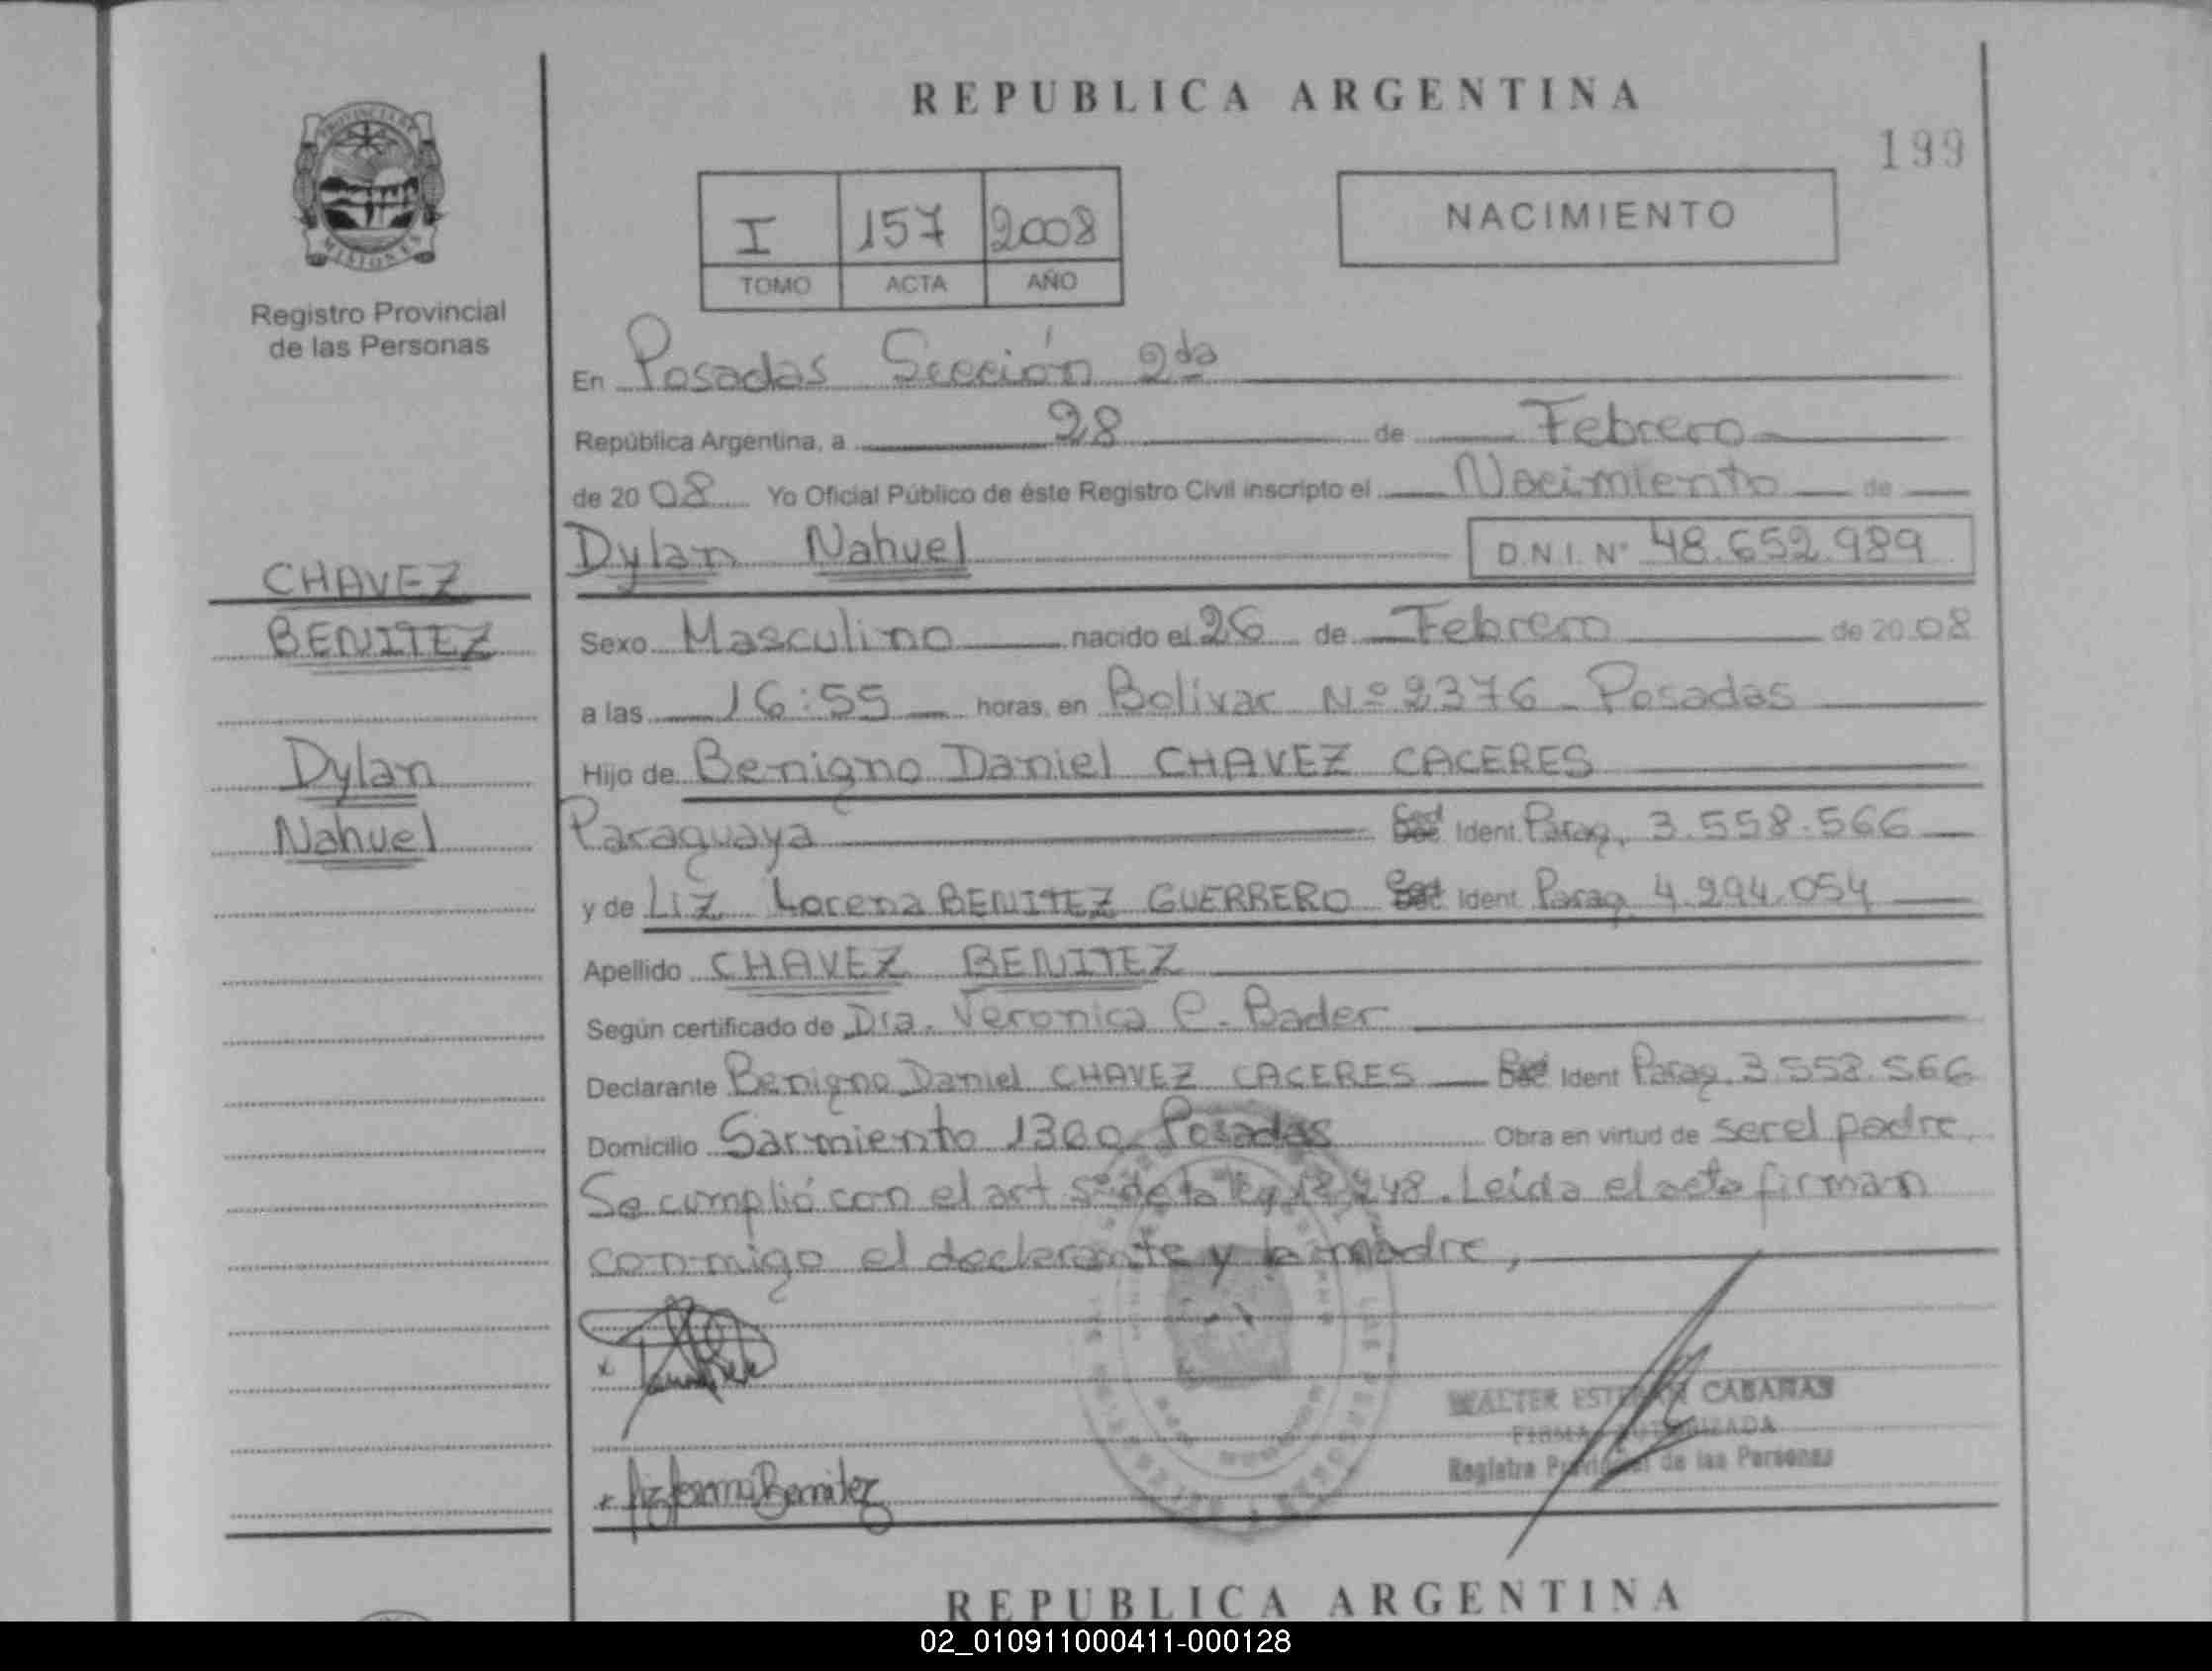 REPUBLICA ARGENTINA
199
PROVINCIA DE
MISIONES
Registro Provincial
de las Personas
I 157 2008
TOMO ACTA AÑO
NACIMIENTO
En Posadas Sección 2da
República Argentina, a 28 de Febrero
de 20 08 Yo Oficial Público de éste Registro Civil inscripto el Nacimiento de
Dylan Nahuel D.N.I. N° 48.652.989
CHAVEZ
BENITEZ
Dylan
Nahuel
Sexo Masculino nacido el 26 de Febrero de 20 08
a las 16:55 horas, en Bolivar Nº 2376 - Posadas
Hijo de Benigno Daniel CHAVEZ CACERES
Paraguaya Ced Ident. Parag. 3.558.566
y de Liz Lorena BENITEZ GUERRERO Ced Ident Parag 4.294.054
Apellido CHAVEZ BENITEZ
Según certificado de Dra. Veronica C. Bader
Declarante Benigno Daniel CHAVEZ CACERES Ident Parag. 3.558.566
Domicilio Sarmiento Posadas Obra en virtud de ser el padre.
Se cumplió con el art 5º de la Ley 18.248. Leida el acta firman
conmigo el declarante y la madre,
WALTER CABAÑAS
FIRMA AUTORIZADA
Registro Provincial de las Personas
Liz Lorena Benitez
REPUBLICA ARGENTINA
02_010911000411-000128